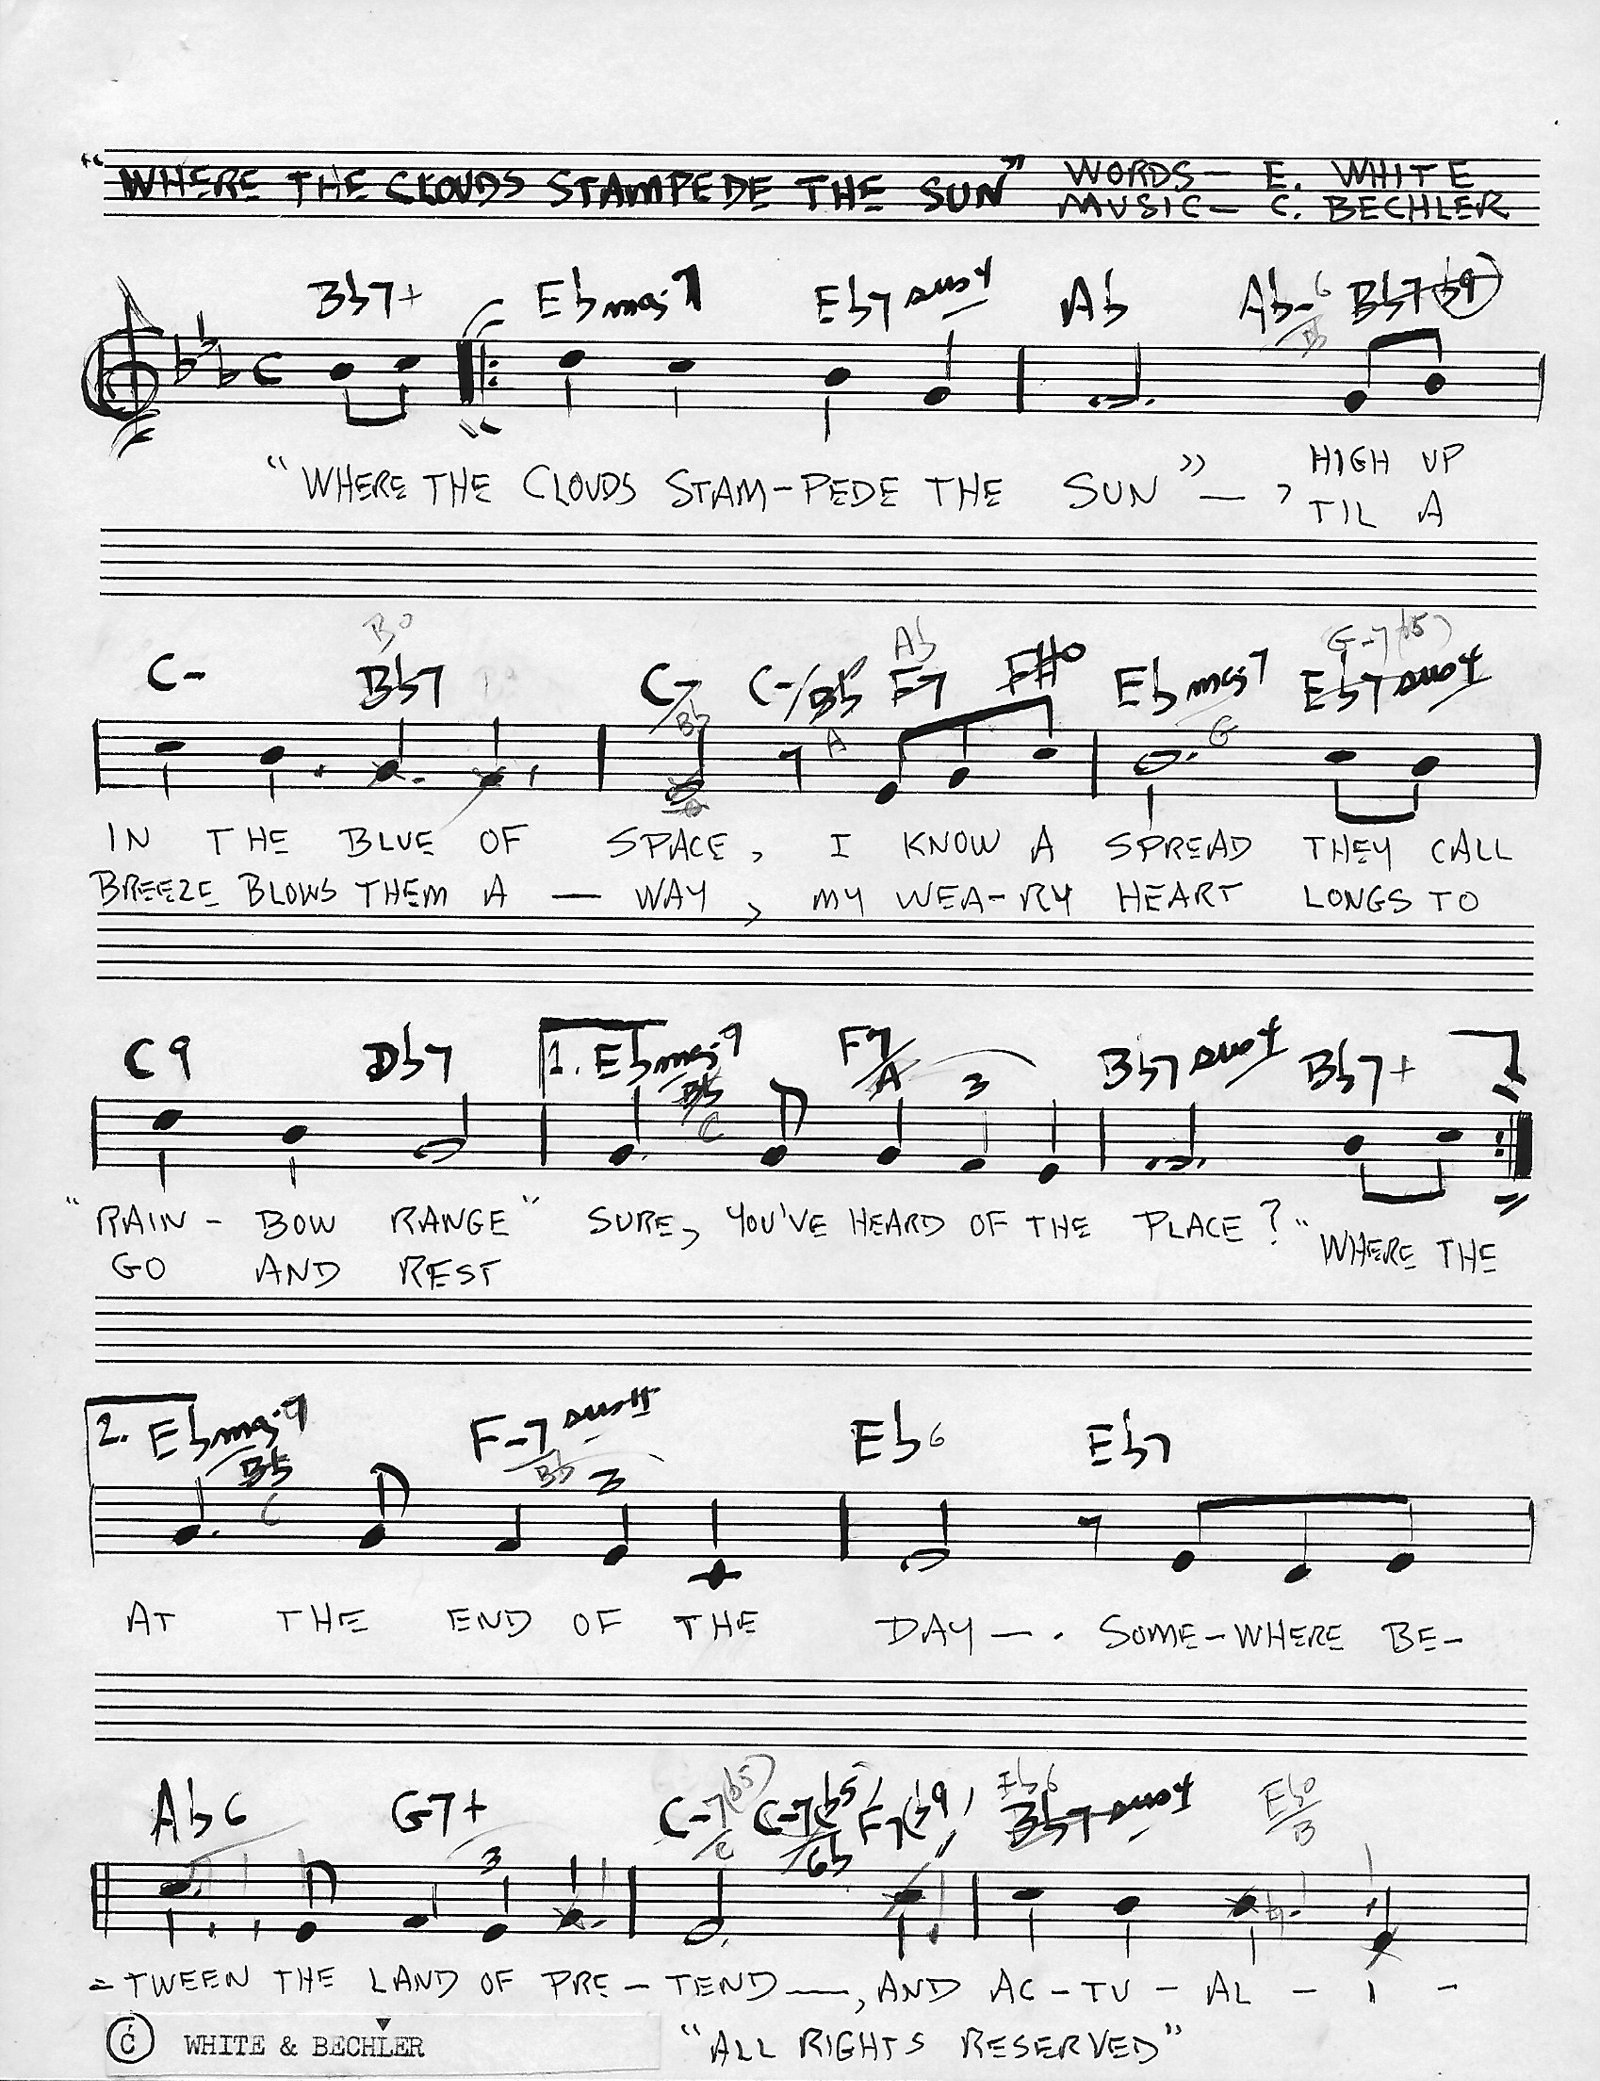 "WHERE THE CLOUDS STAMPEDE THE SUN" WORDS — E. WHITE
MUSIC — C. BECHLER
Bb7+ Ebmaj7 Eb7sus4 Ab Ab-6 Bb7(b9)
B
"WHERE THE CLOUDS STAM-PEDE THE SUN" —, HIGH UP
TIL A
Bo Ab G-7(b5)
C- Bb7 C-7 C-/Bb F7 F#o Ebmaj7 Eb7sus4
Bb A G
IN THE BLUE OF SPACE, I KNOW A SPREAD THEY CALL
BREEZE BLOWS THEM A — WAY, MY WEA-RY HEART LONGS TO
C9 Db7 1. Ebmaj9 F7 Bb7sus4 Bb7+
Bb A 3
C
"RAIN - BOW RANGE" SURE, YOU'VE HEARD OF THE PLACE? "WHERE THE
GO AND REST
2. Ebmaj9 F-7sus11 Eb6 Eb7
Bb Bb 3
C
AT THE END OF THE DAY —. SOME-WHERE BE-
Ab6 G7+ C-7(b5) C-7(b5) F7(b9) Eb6 Bb7sus4 Ebo
3 C Gb B
-TWEEN THE LAND OF PRE - TEND —, AND AC - TU - AL - I -
© WHITE & BECHLER "ALL RIGHTS RESERVED"